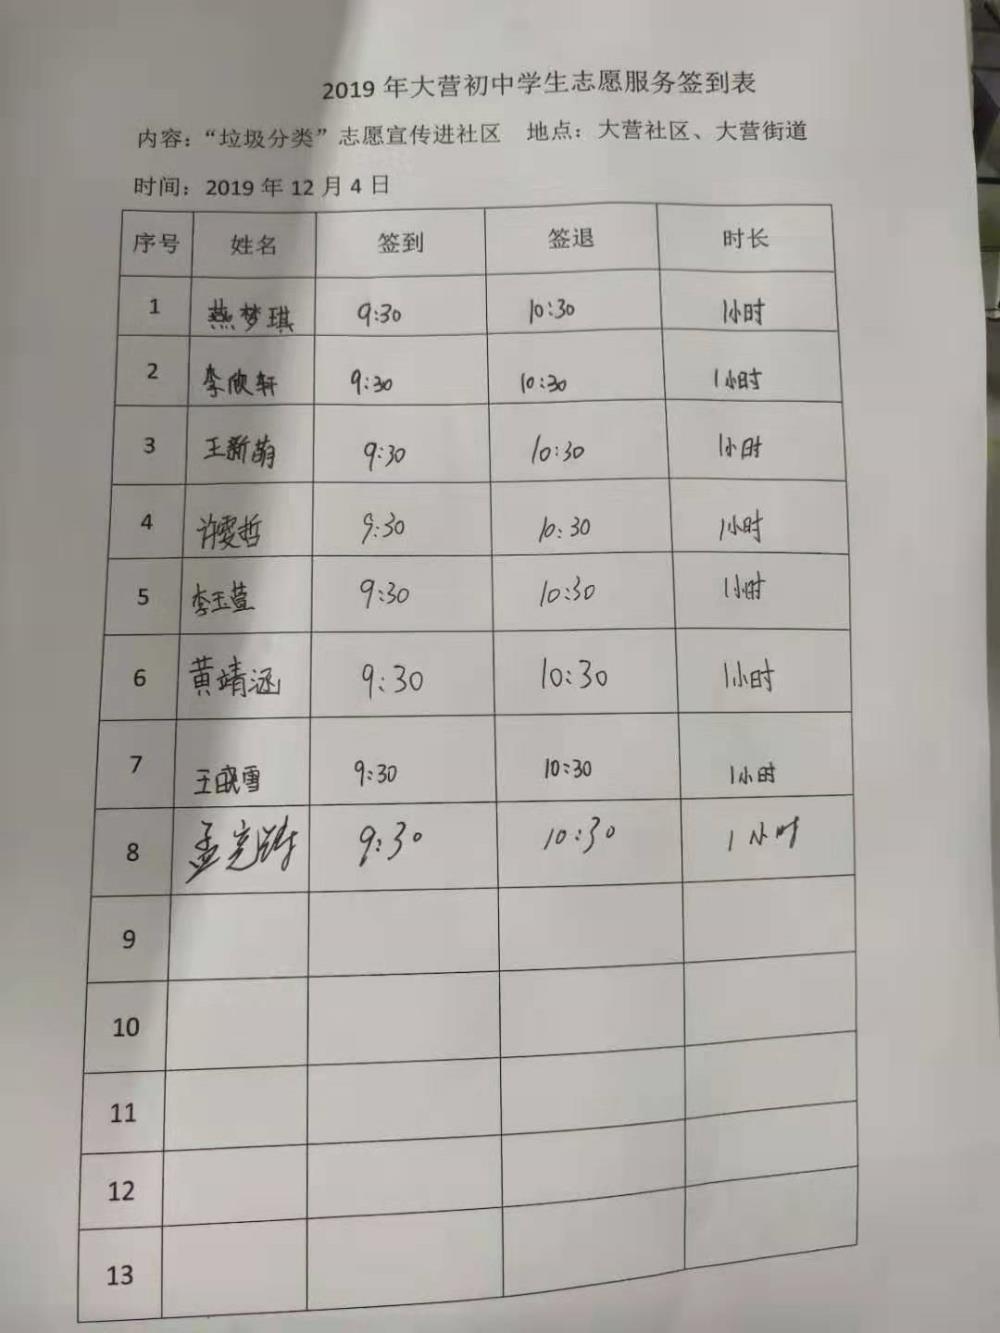 2019 年大营初中学生志愿服务签到表
内容：“垃圾分类”志愿宣传进社区 地点：大营社区、大营街道
时间：2019 年 12 月 4 日
序号 姓名 签到 签退 时长
1 燕梦琪 9:30 10:30 1小时
2 李欣轩 9:30 10:30 1小时
3 王新萌 9:30 10:30 1小时
4 许雯哲 9:30 10:30 1小时
5 李玉萱 9:30 10:30 1小时
6 黄靖涵 9:30 10:30 1小时
7 王晓雪 9:30 10:30 1小时
8 9:30 10:30 1小时
9
10
11
12
13